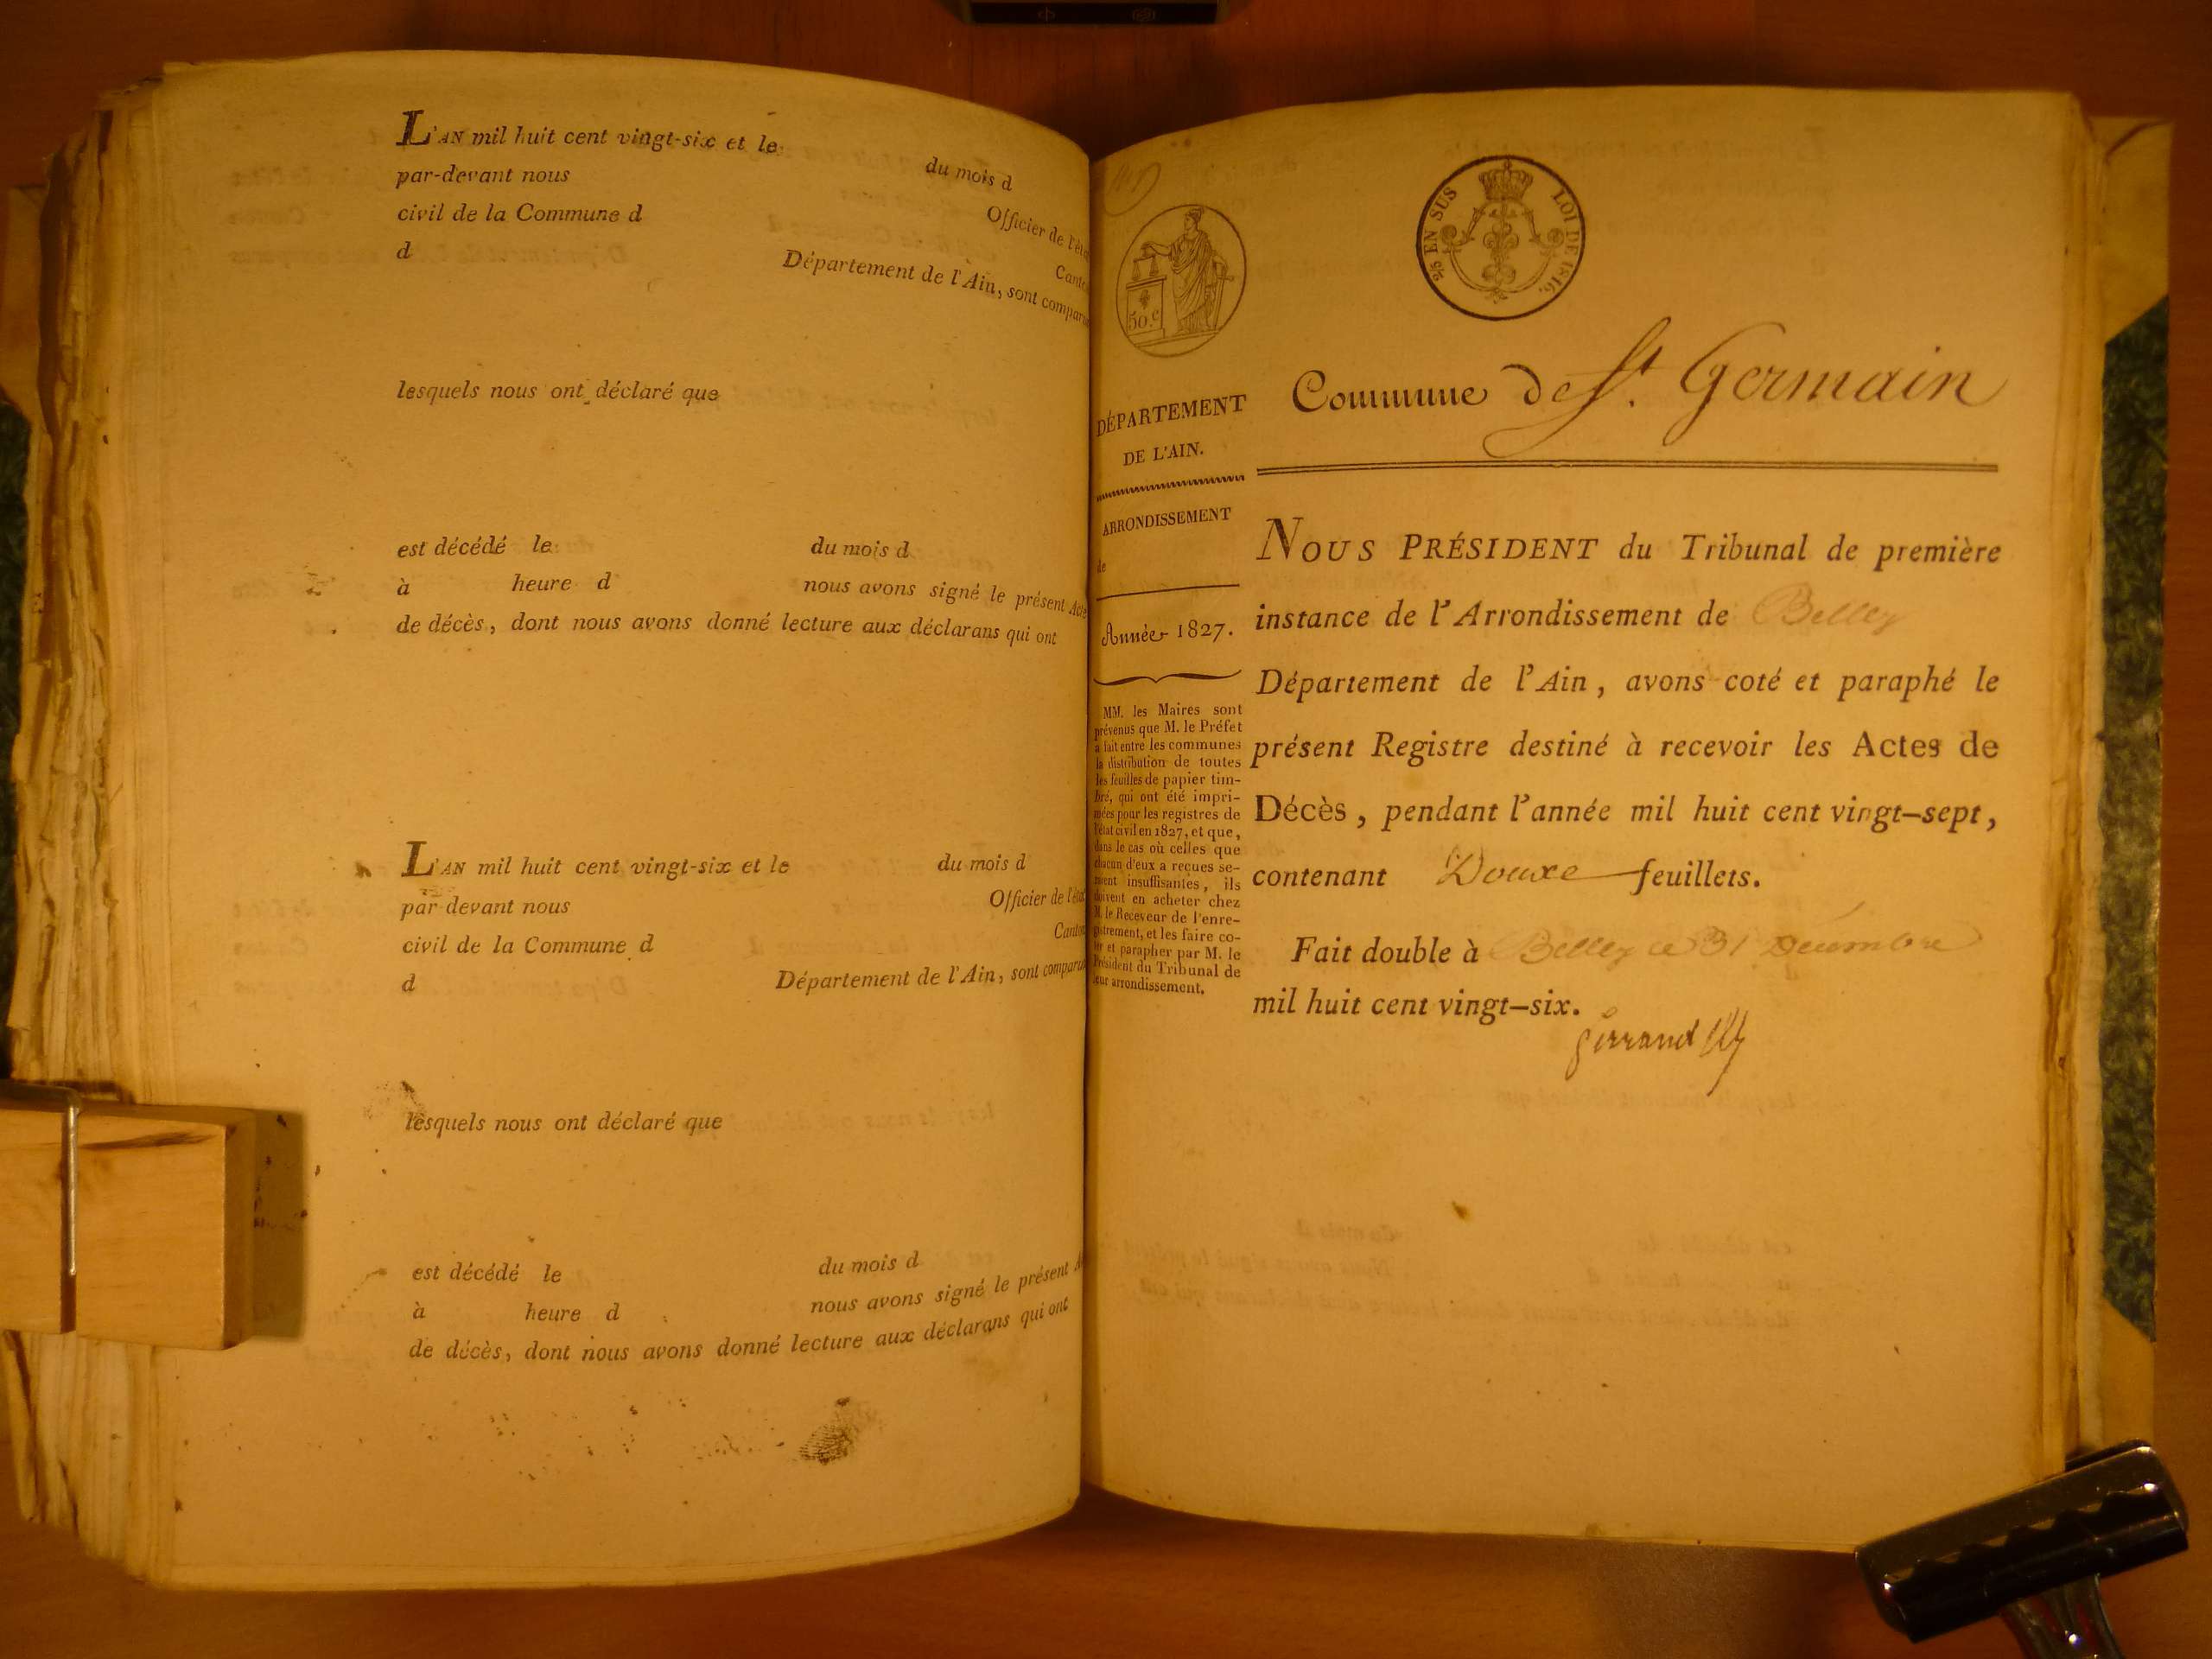 L'AN mil huit cent vingt-six et le du mois d
par-devant nous Officier de l'éta
civil de la Commune d Canto
d Département de l'Ain, sont comparu
lesquels nous ont déclaré que
est décédé le du mois d
à heure d nous avons signé le présent Acte
de décès, dont nous avons donné lecture aux déclarans qui ont
L'AN mil huit cent vingt-six et le du mois d
par devant nous Officier de l'éta
civil de la Commune d Canton
d Département de l'Ain, sont comparu
lesquels nous ont déclaré que
est décédé le du mois d
à heure d nous avons signé le présent A
de décès, dont nous avons donné lecture aux déclarans qui ont
50.c
DÉPARTEMENT
DE L'AIN.
ARRONDISSEMENT
de
Année 1827.
MM. les Maires sont
prévenus que M. le Préfet
a fait entre les communes
la distribution de toutes
les feuilles de papier tim-
bré, qui ont été impri-
mées pour les registres de
l'état civil en 1827, et que,
dans le cas où celles que
chacun d'eux a reçues se-
roient insuffisantes, ils
doivent en acheter chez
M. le Receveur de l'enre-
gistrement, et les faire co-
ter et parapher par M. le
Président du Tribunal de
leur arrondissement.
2/5 EN SUS LOI DE 1816.
Commune de St. Germain
NOUS PRÉSIDENT du Tribunal de première
instance de l'Arrondissement de Belley
Département de l'Ain, avons coté et paraphé le
présent Registre destiné à recevoir les Actes de
Décès, pendant l'année mil huit cent vingt-sept,
contenant Douze feuillets.
Fait double à Belley le 31 Décembre
mil huit cent vingt-six.